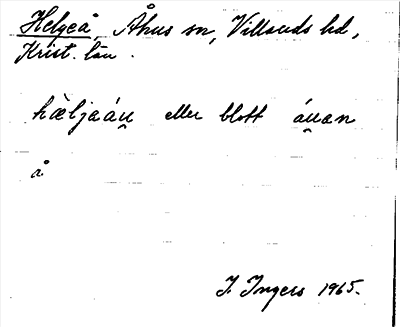 Helgeå, Åhus sn, Villands hd,
Krist. län.
hæ̀ljaáu̯ eller blott áu̯an
å
I. Ingers 1965.